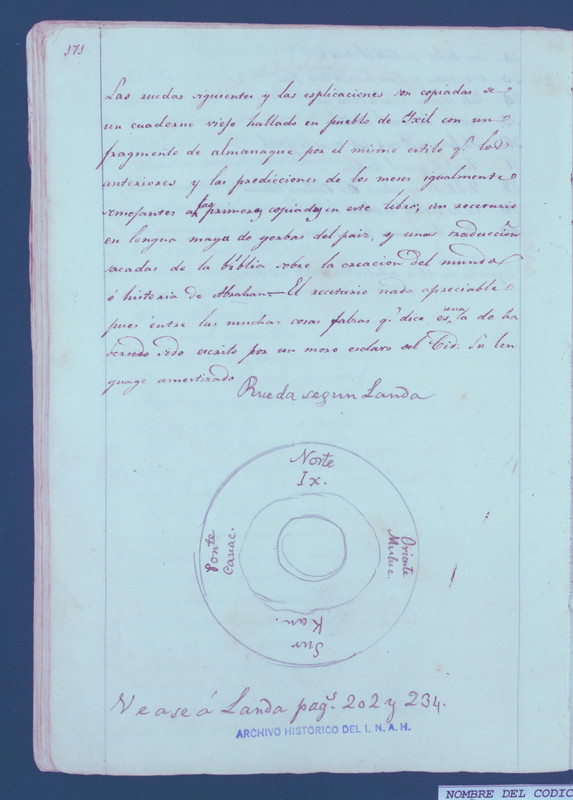 171
Las ruedas siguientes y las esplicaciones son copiadas de
un cuaderno viejo hallado en pueblo de Ixil con un
fragmento de almanaque por el mismo estilo qe. los
anteriores y las predicciones de los meses igualmente
semejantes a las primeras copiadas en este libro, un recetario
en lengua maya de yerbas del pais, y una traduccion
sacadas de la biblia sobre la creacion del mundo
ó historia de Abrahan.— El recetario nada apreciable
pues entre las muchas cosas falsas qe. dice es una la de ha
berse sido escrito por un moro esclavo del Cid. Su len
guage
Rueda segun Landa
Norte
Ix.
Oriente
Muluc.
Sur
Kan.
Ponte
Cauac.
Vease á Landa pags. 202 y 234.
ARCHIVO HISTORICO DEL I. N. A. H.
NOMBRE DEL CODIC